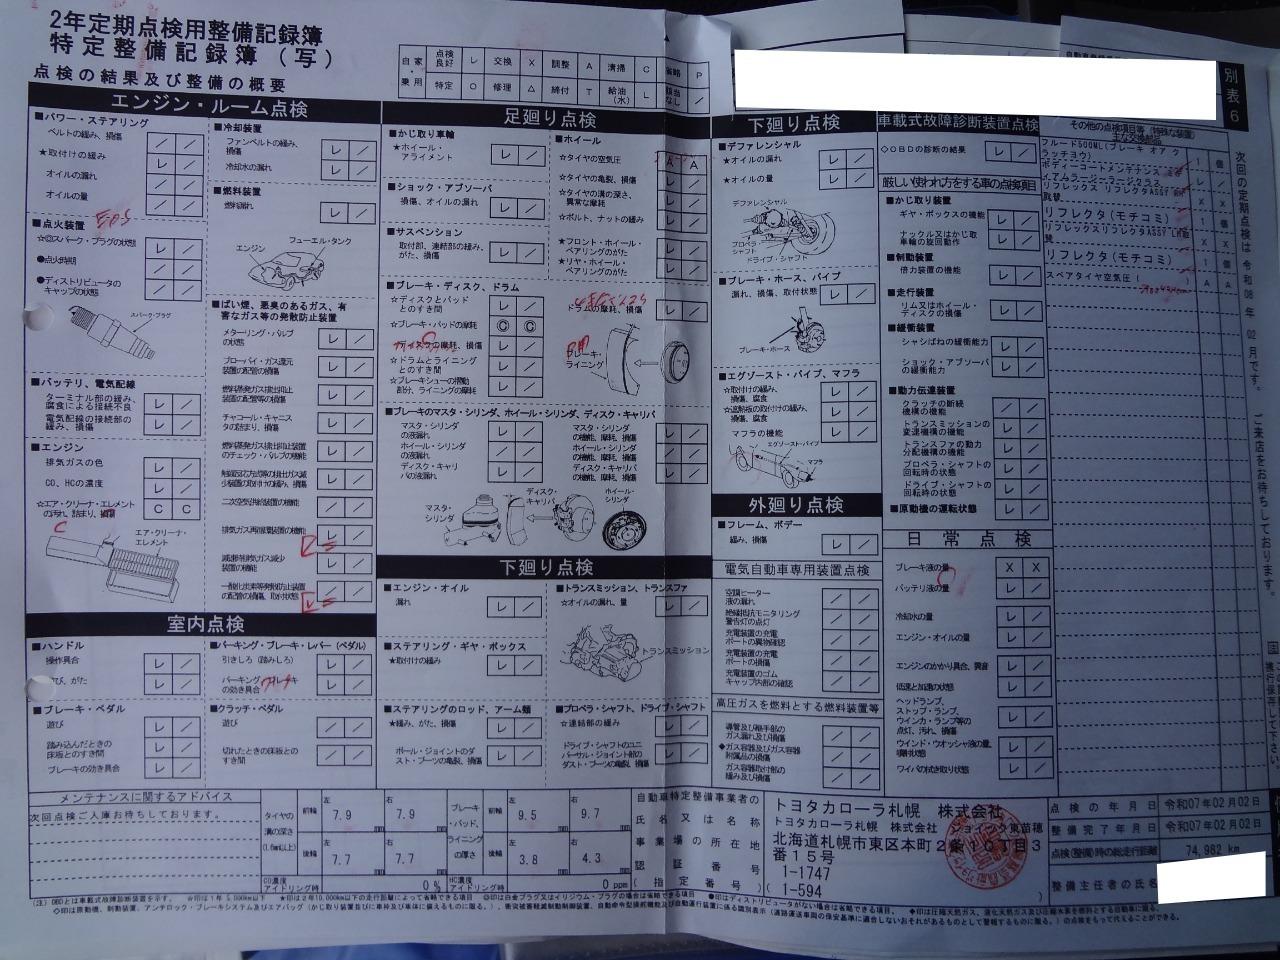 2年定期点検用整備記録簿
特定整備記録簿(写)
点検の結果及び整備の概要
自家・乗用
点検良好 レ 交換 X 調整 A 清掃 C 省略 P
特定 ○ 修理 △ 締付 T 給油(水) L 該当なし /
別表6
エンジン・ルーム点検
■パワー・ステアリング
ベルトの緩み、損傷 / /
★取付けの緩み / /
オイルの漏れ / /
オイルの量 / /
EPS
■点火装置
☆◎スパーク・プラグの状態 / /
●点火時期 / /
●ディストリビュータのキャップの状態 / /
スパーク・プラグ
■バッテリ、電気配線
ターミナル部の緩み、腐食による接続不良 レ /
電気配線の接続部の緩み、損傷 レ /
■エンジン
排気ガスの色 レ /
CO、HCの濃度 レ /
☆エア・クリーナ・エレメントの汚れ、詰まり、損傷 C C
C
エア・クリーナ・エレメント
■冷却装置
ファンベルトの緩み、損傷 / /
冷却水の漏れ レ /
■燃料装置
燃料漏れ レ /
フューエル・タンク
エンジン
■ばい煙、悪臭のあるガス、有害なガス等の発散防止装置
メターリング・バルブの状態 レ /
ブローバイ・ガス還元装置の配管の損傷 レ /
燃料蒸発ガス排出抑止装置の配管等の損傷 レ /
チャコール・キャニスタの詰まり、損傷 レ /
燃料蒸発ガス排出抑止装置のチェック・バルブの機能 レ /
触媒反応方式等の排出ガス減少装置の取付けの緩み、損傷 レ /
二次空気供給装置の機能 / /
排気ガス再循環装置の機能
減速時排気ガス減少装置の機能
一酸化炭素等発散防止装置の配管の損傷、取付状態
室内点検
■ハンドル
操作具合 レ /
遊び、がた レ /
■パーキング・ブレーキ・レバー(ペダル)
引きしろ(踏みしろ) レ /
パーキング・ブレーキの効き具合 レ /
■ブレーキ・ペダル
遊び レ /
踏み込んだときの床板とのすき間 レ /
ブレーキの効き具合 レ /
■クラッチ・ペダル
遊び / /
切れたときの床板とのすき間 / /
足廻り点検
■かじ取り車輪
★ホイール・アライメント レ /
■ショック・アブソーバ
損傷、オイルの漏れ レ /
■サスペンション
取付部、連結部の緩み、がた、損傷 レ /
■ブレーキ・ディスク、ドラム
☆ディスクとパッドとのすき間 レ /
☆ブレーキ・パッドの摩耗 Ⓒ Ⓒ
ディスクの摩耗、損傷 レ /
☆ドラムとライニングとのすき間 レ /
☆ブレーキシューの摺動部分、ライニングの摩耗 レ /
ドラムの摩耗、損傷
ブレーキ・ライニング
■ホイール
☆タイヤの空気圧 A A
☆タイヤの亀裂、損傷 レ /
☆タイヤの溝の深さ、異常な摩耗 レ /
☆ボルト、ナットの緩み レ /
★フロント・ホイール・ベアリングのがた レ /
★リヤ・ホイール・ベアリングのがた レ /
■ブレーキのマスタ・シリンダ、ホイール・シリンダ、ディスク・キャリパ
マスタ・シリンダの液漏れ レ /
ホイール・シリンダの液漏れ レ /
ディスク・キャリパの液漏れ レ /
マスタ・シリンダの機能、摩耗、損傷 レ /
ホイール・シリンダの機能、摩耗、損傷 レ /
ディスク・キャリパの機能、摩耗、損傷 レ /
マスタ・シリンダ
ディスク・キャリパ
ホイール・シリンダ
下廻り点検
■エンジン・オイル
漏れ レ /
■ステアリング・ギヤ・ボックス
★取付けの緩み レ /
■ステアリングのロッド、アーム類
★緩み、がた、損傷 レ /
ボール・ジョイントのダスト・ブーツの亀裂、損傷 レ /
■トランスミッション、トランスファ
☆オイルの漏れ、量 レ /
トランスミッション
■プロペラ・シャフト、ドライブ・シャフト
★連結部の緩み レ /
ドライブ・シャフトのユニバーサル・ジョイント部のダスト・ブーツの亀裂、損傷 レ /
下廻り点検
■デファレンシャル
★オイルの漏れ レ /
★オイルの量 レ /
デファレンシャル
プロペラ・シャフト
ドライブ・シャフト
■ブレーキ・ホース、パイプ
漏れ、損傷、取付状態 レ /
ブレーキ・ホース
■エグゾースト・パイプ、マフラ
☆取付けの緩み、損傷、腐食 レ /
☆遮熱板の取付けの緩み、損傷、腐食 レ /
マフラの機能 レ /
エグゾースト・パイプ
マフラ
外廻り点検
■フレーム、ボデー
緩み、損傷 レ /
電気自動車専用装置点検
空調ヒーター液の漏れ / /
絶縁抵抗モニタリング警告灯の点灯 / /
充電装置の充電ポートの異物確認 / /
充電装置の充電ポートの損傷 / /
充電装置のゴムキャップ内部の確認 / /
高圧ガスを燃料とする燃料装置等
導管及び継手部のガス漏れ及び損傷 / /
◆ガス容器及びガス容器附属品の損傷 / /
ガス容器取付部の緩み及び損傷 / /
車載式故障診断装置点検
◇OBDの診断の結果 レ /
厳しい使われ方をする車の点検項目
■かじ取り装置
ギヤ・ボックスの機能 レ /
ナックル又はかじ取車輪の旋回動作 レ /
■制動装置
倍力装置の機能 レ /
■走行装置
リム又はホイール・ディスクの損傷 レ /
■緩衝装置
シャシばねの緩衝能力 レ /
ショック・アブソーバの緩衝能力 レ /
■動力伝達装置
クラッチの断続機構の機能 / /
トランスミッションの変速機構の機能 レ /
トランスファの動力分配機構の機能
プロペラ・シャフトの回転時の状態
ドライブ・シャフトの回転時の状態 レ /
■原動機の運転状態 レ /
日常点検
ブレーキ液の量 X X
バッテリ液の量 レ /
冷却水の量 レ /
エンジン・オイルの量 レ /
エンジンのかかり具合、異音 レ /
低速と加速の状態 レ /
ヘッドランプ、ストップ・ランプ、ウインカ・ランプ等の点灯、汚れ、損傷 レ /
ウインド・ウオッシャ液の量、噴射状態 レ /
ワイパの拭き取り状態 レ /
その他の点検項目等(特殊な装置)
主な交換部品
フルード500ML(ブレーキ オア クラッチヨウ) 1 個
ボディーコートメンテナンス
リフレックス リフレクタASSY
リフレクタ(モチコミ) 1 個
リフレックスリフレクタASSY LH
リフレクタ(モチコミ) 1 個
スペアタイヤ空気圧 A A
次回の定期点検は 令和08年 02月です。 ご来店をお待ちしております。
メンテナンスに関するアドバイス
次回点検ご入庫お待ちしております。
タイヤの溝の深さ(1.6mm以上)
前輪 左 7.9 右 7.9 mm
後輪 7.7 7.7 mm
ブレーキ・パッド、ライニングの厚さ
前輪 左 9.5 右 9.7 mm
後輪 3.8 4.3 mm
CO濃度 アイドリング時 0 %
HC濃度 アイドリング時 0 ppm
自動車特定整備事業者の
氏名又は名称
事業場の所在地
認証番号
(指定番号)
トヨタカローラ札幌 株式会社
トヨタカローラ札幌 株式会社 ジョイック東苗穂
北海道札幌市東区本町2条10丁目3番15号
1-1747
( 1-594 )
点検の年月日 令和07年02月02日
整備完了年月日 令和07年02月02日
点検(整備)時の総走行距離 74,982 km
整備主任者の氏名
(注) OBDとは車載式故障診断装置を示す。 ☆印は1年 5,000km以下 ★印は2年10,000km以下の走行距離によって省略できる項目 ◎印は白金プラグ又はイリジウム・プラグの場合は省略できる項目 ●印はディストリビュータがない場合は省略できる項目。